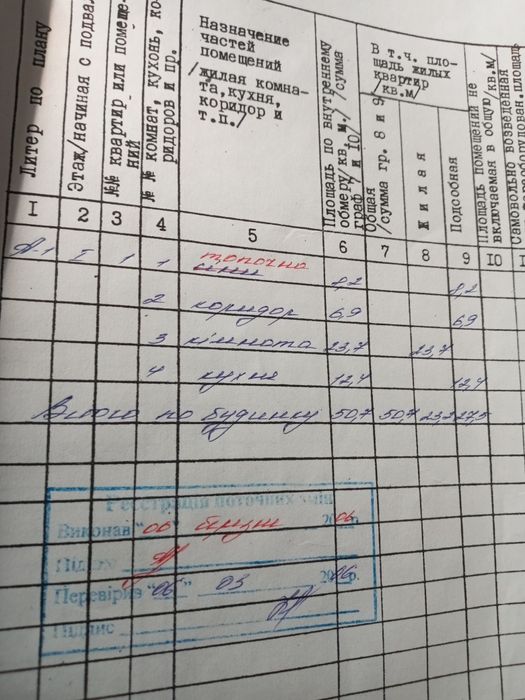 Литер по плану
Этаж/начиная с подва
№№ квартир или помеще-
ний
№ № комнат, кухонь, ко-
ридоров и пр.
Назначение
частей
помещений
/жилая комна-
та, кухня,
коридор и
т.п./
Площадь по внутреннему
обмеру/кв.м./сумма
граф 7 и 10/
В т.ч. пло-
щадь жилых
квартир
/кв.м/
Общая
/сумма гр. 8 и 9
жилая
Подсобная
Площадь помещений не
включаемая в общую/кв.м/
Самовольно возведенная
I 2 3 4 5 6 7 8 9 10
А-1 I 1 1 топочна 8,2 8,2
2 коридор 6,9 6,9
3 кімната 23,7 23,7
4 кухня 12,4 12,4
Всього по будинку 50,7 50,7 27,5
Реєстрація поточних змін
Виконав "06 2006
Підпис
Перевірив "06" 03 2006р.
Підпис